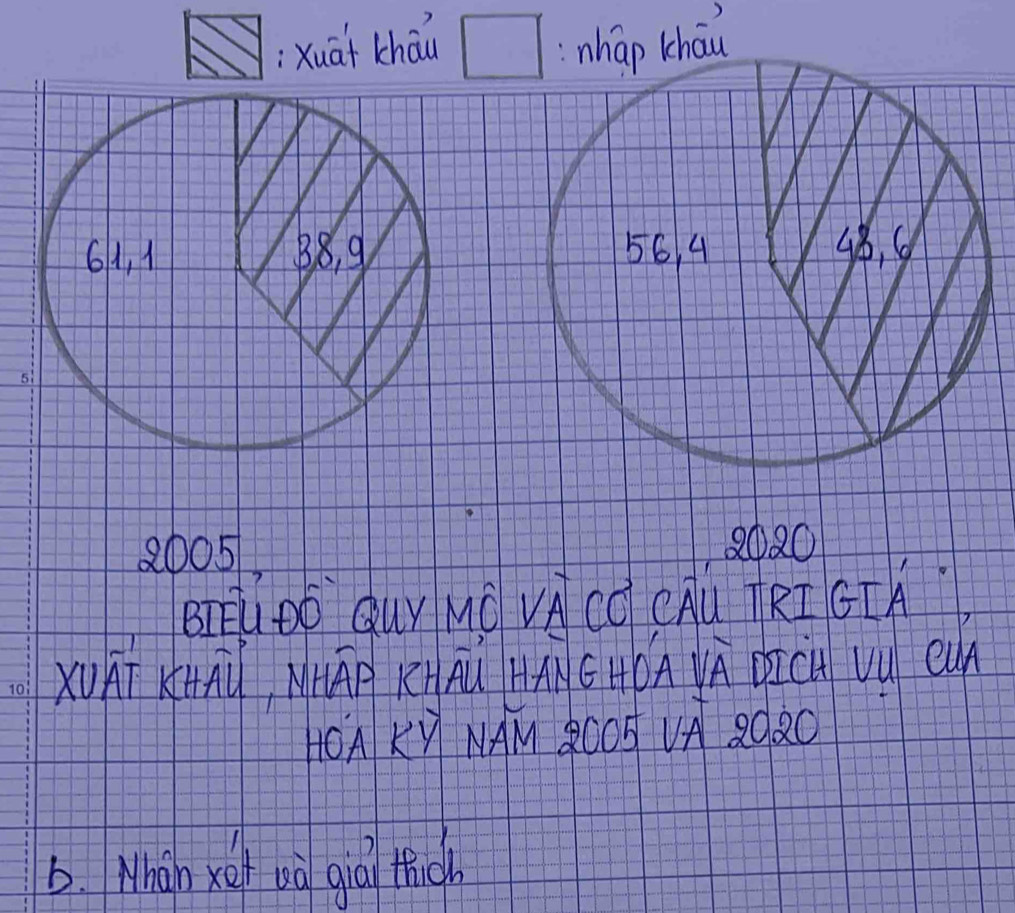 : xuất khẩu : nhập khẩu
61,1 38,9 56,4 43,6
5
2005 2020
BIỂU ĐỒ QUY MÔ VÀ CƠ CẤU TRỊ GIÁ
XUẤT KHẨU, NHẬP KHẨU HÀNG HÓA VÀ DỊCH VỤ CỦA
10
HOA KỲ NĂM 2005 VÀ 2020
b. Nhận xét và giải thích